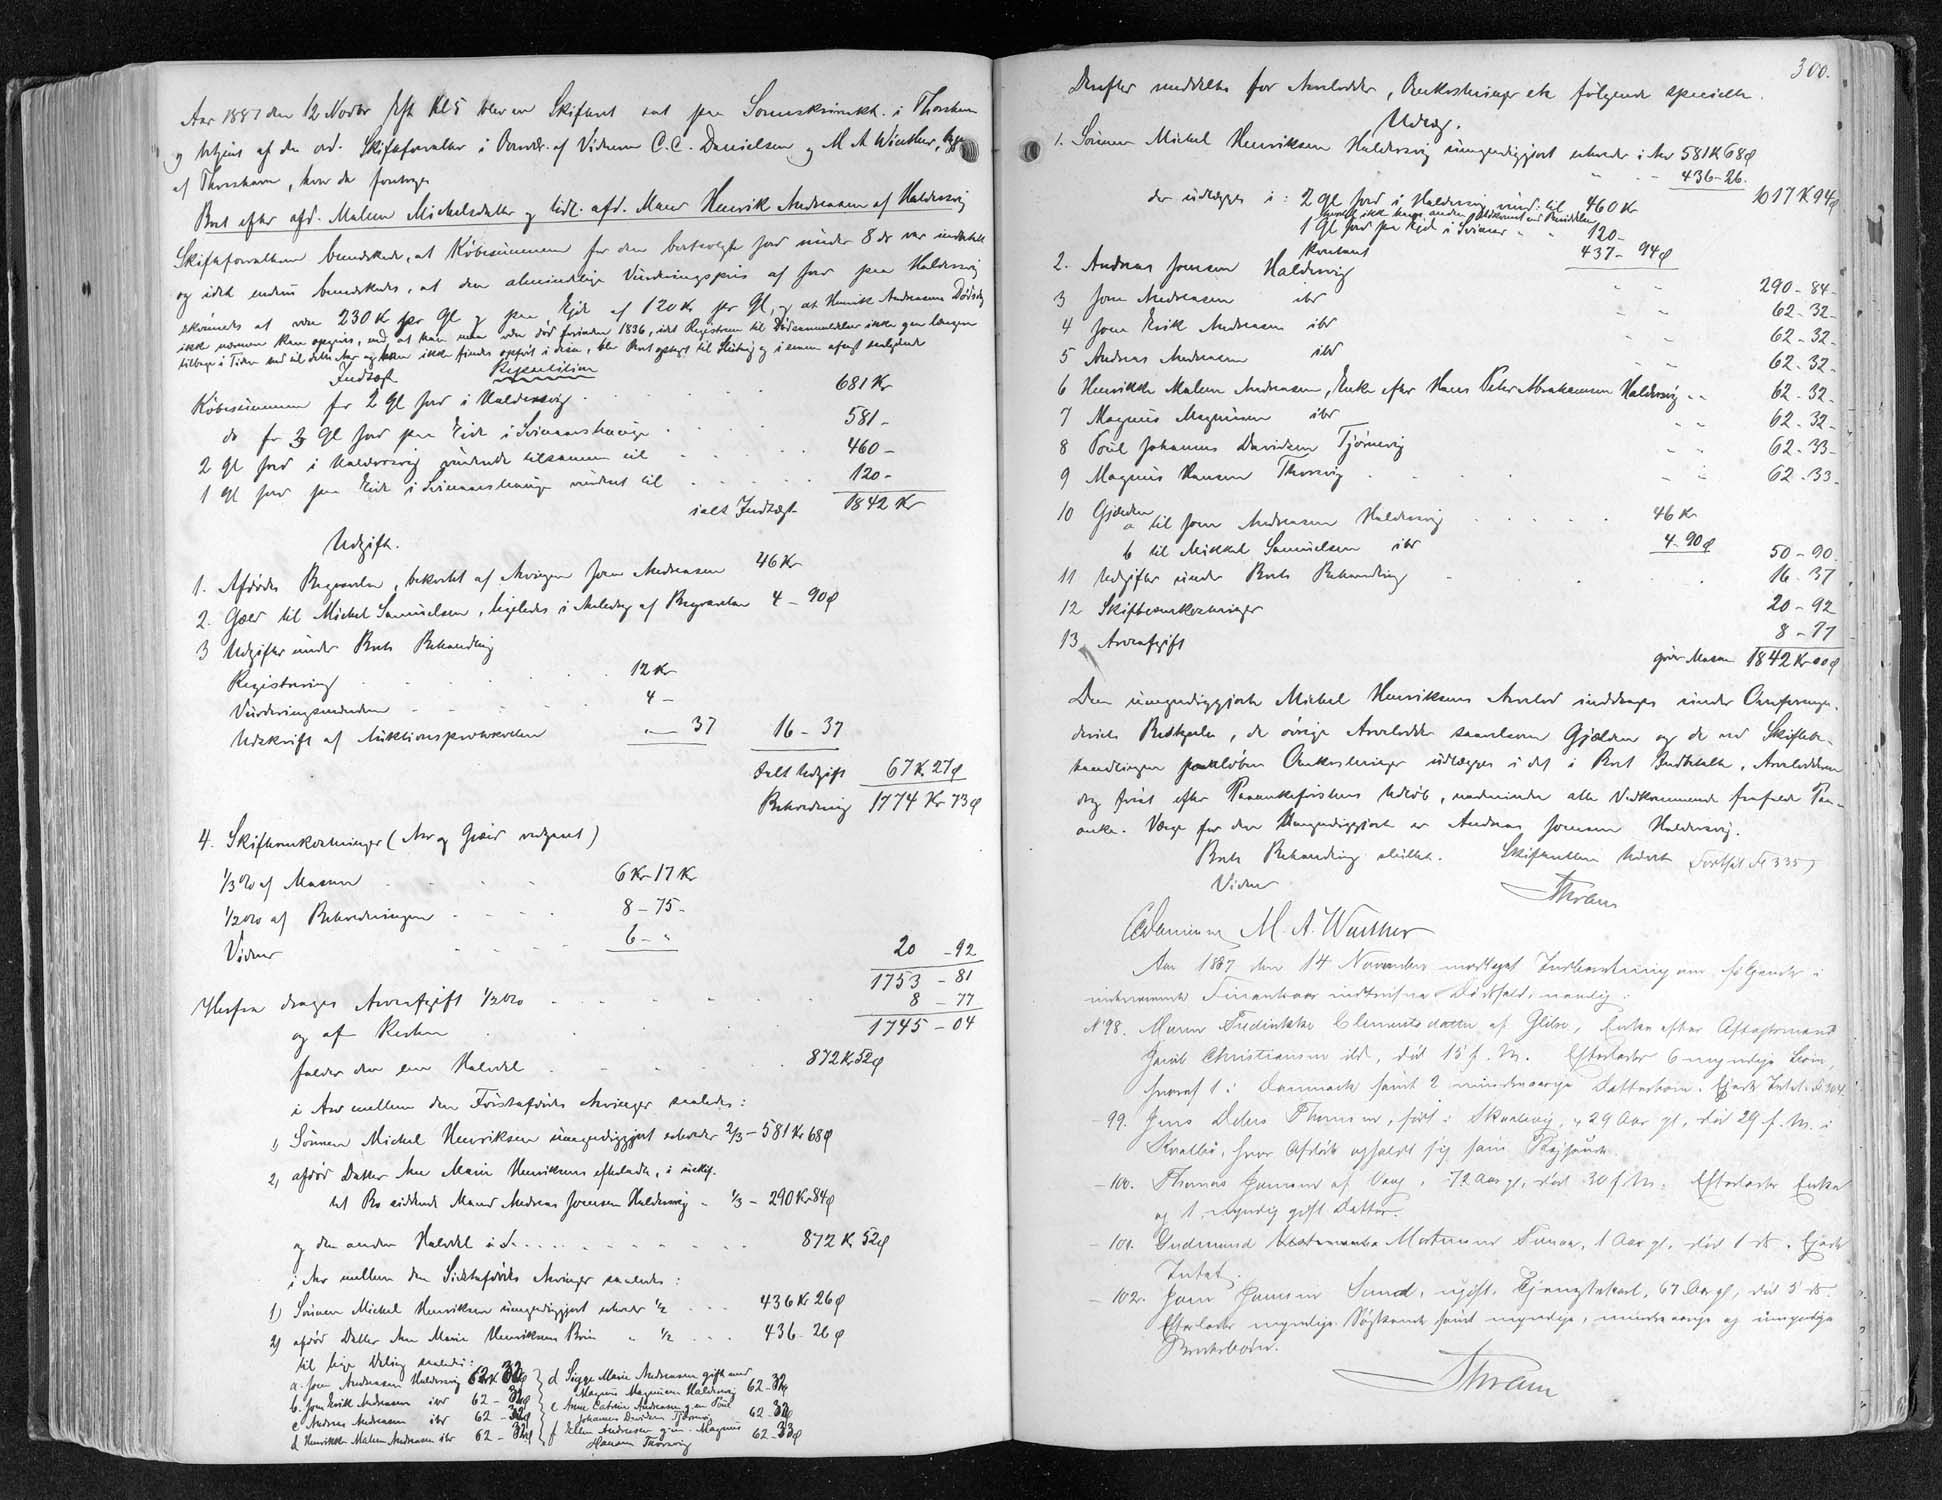 Aar 1887 den 12 Novbr Efth Kl 5 blev en Skifteret sat paa Sorenskriverkt. i Thorshavn
og betjent af den ord. Skifteforvalter i Overvær af Vidnerne C. C. Danielsen og M A Winther, begge
af Thorshavn, hvor da foretoges
Boet efter afd. Malene Michelsdatter og tidl. afd. Mand Henrik Andreasen af Haldersvig
Skifteforvalteren bemærkede, at Købesummen for den bortsolgte Jord under 8 ds var indbetalt
og idet endnu bemærkedes, at den almindelige Vurderingspris af Jord paa Haldersvig
skønnedes at være 230 K pr Gl og paa Ejde af 120 Kr pr Gl, og at Henrik Andreasens Dødsdag
ikke nærmere kan opgives, end at han maa være død forinden 1836, idet Registrene til Dødsanmeldelser ikke gaa længere
tilbage i Tiden end til dette Aar og han ikke findes opført i disse, blev Boet optaget til Slutning og i samme afsagt saalydende
Repartition
Indtægt
Købesummen for 2 Gl Jord i Haldersvig . . . . . 681 Kr
do for 3 Gl Jord paa Eide i Svinaashauge . . . . 581 -
2 Gl Jord i Haldersvig vurderede tilsammen til . . . . 460 -
1 Gl Jord paa Eide i Svinaashauge vurderet til . . . . 120 -
ialt Indtægt 1842 Kr
Udgift.
1. Afdødes Begravelse, bekostet af Arvingen Joen Andreasen 46 Kr
2. Gæld til Michel Samuelsen, ligeledes i Anledning af Begravelsen 4 - 90 ø
3 Udgifter under Boets Behandling
Registrering . . . . . 12 Kr
Vurderingsmændene . . . . 4 -
Udskrift af Auktionsprotokollen " - 37 16 - 37
Ialt Udgift 67 K. 27 ø
Beholdning 1774 Kr 73 ø
4. Skifteomkostninger (Arv og Gæld vedgaaet)
1/3 % af Massen . . . . 6 Kr 17 Kr
1/2 % af Beholdningen . . . . 8 - 75 -
Vidner . . . . 6 - " 20 - 92
1753 - 81
Herfra drages Arveafgift 1/2 % . . . . . 8 - 77
og af Resten . . . . 1745 - 04
falder den ene Halvdel . . . . . 872 Kr 52 ø
i Arv mellem den Førstafdødes Arvinger saaledes:
1, Sønnen Michel Henriksen umyndiggjort erholder 2/3 - 581 Kr 68 ø
2, afdød Datter Ane Marie Henriksens efterladte, i uskif-
tet Bo siddende Mand Andreas Joensen Haldersvig - 1/3 - 290 Kr 84 ø
og den anden Halvdel . . . . . 872 K 52 ø
i Arv mellem den Sidstafdødes Arvinger saaledes:
1) Sønnen Michel Henriksen umyndiggjort erholder 1/2 . . . 436 Kr 26 ø
2) afdød Datter Ane Marie Henriksens Børn " 1/2 . . . 436 - 26 ø
til lige Deling saaledes:
a. Joen Andreasen Haldersvig 62 K 32 ø
b. Joen Erik Andreasen ibd 62 - 32 ø
c Andreas Andreasen ibr 62 - 32 ø
d Henrikke Malene Andreasen ibr 62 - 32 ø
d Sigge Marie Andreasen gift med
Magnus Magnussen Haldersvig 62 - 32 ø
e Anne Catrine Andreasen g. m Poul
Johannes Davidsen Tjørnevig 62 - 32 ø
f Ellen Andreasen g. m. Magnus
Hansen Thorsvig 62 - 33 ø
300.
Derefter meddeltes for Arvelodder, Omkostninger etc følgende specielle
Udlæg.
1. Sønnen Michel Henriksen Haldersvig umyndiggjort erholder i Arv 581 K 68 ø
" " - 436 - 26.
1017 K 94 ø
der udlægges i: 2 Gl Jord i Haldersvig vurd. til 460 Kr
1 Gl Jord paa Ejde i Svinaas " " 120 -
kontant 437 - 94 ø
2. Andreas Joensen Haldersvig " " 290 - 84 -
3 Joen Andreasen ibr " " 62 - 32 -
4 Joen Erik Andreasen ibr - - 62 - 32 -
5 Andreas Andreasen ibd - - 62 - 32 -
6 Henrikke Malene Andreasen, Enke efter Hans Peter Abrahamsen Haldersvig - - 62 - 32 -
7 Magnus Magnussen ibr - - 62 - 32 -
8 Poul Johannes Davidsen Tjørnevig - - 62 - 33 -
9 Magnus Hansen Thorsvig . . . . - - 62 - 33 -
10 Gjælden
a til Joen Andreasen Haldersvig . . . . . 46 Kr
b til Mikkel Samuelsen ibr 4 - 90 ø 50 - 90.
11 Udgifter under Boets Behandling . . . . 16 - 37
12 Skifteomkostninger 20 - 92
13, Arveafgift 8 - 77
giver Massen 1842 Kr 00 ø
Den umyndiggjorte Michel Henriksens Arvelod inddrages under Overformyn-
deriets Bestyrelse, de øvrige Arvelodder saavelsom Gjælden og de ved Skiftebe-
handlingen paaløbne Omkostninger udlægges i det i Boet Indbetalte, Arvelodderne
dog først efter Paaankefristens Udløb, medmindre alle Vedkommende frafalde Paa-
anke. Værge for den Umyndiggjorte er Andreas Joensen Haldersvig.
Boets Behandling sluttet. Skifteretten hævet (Fortsat Fl 335)
Vidner Thram
CDanielsen M. A. Winther
Aar 1887 den 14 November modtaget Indberetning om følgende i
indeværende Finantsaar indtrufne Dødsfald, nemlig:
N 98. Maren Fredrikke Clementsdatter af Glibre, Enke efter Aftægtsmand
Jacob Christiansen ibd, død 15 f. M. Efterlader 6 myndige Børn,
hvoraf 1 i Danmark samt 2 mindreaarige Datterbørn. Ejede Intet. Fl 304.
- 99. Jens Peters Thomsen, født i Skaalevig, 29 Aar gl, død 29 f. M. i
Kvalbø, hvor Afdøde opholdt sig som Rejsende.
- 100. Thomas Joensen af Vaag, 72 Aar gl, død 30 f. M. Efterlader Enke
og 1 myndig gift Datter.
- 101. Gudmund Mortensen Famien, 1 Aar gl, død 1 ds. Ejede
Intet.
- 102. Joen Joensen Sund, ugift Tjenestekarl, 67 Aar gl, død 5 ds.
Efterlader myndige Søskende samt myndige, mindreaarige og umyndige
Broderbørn.
Thram